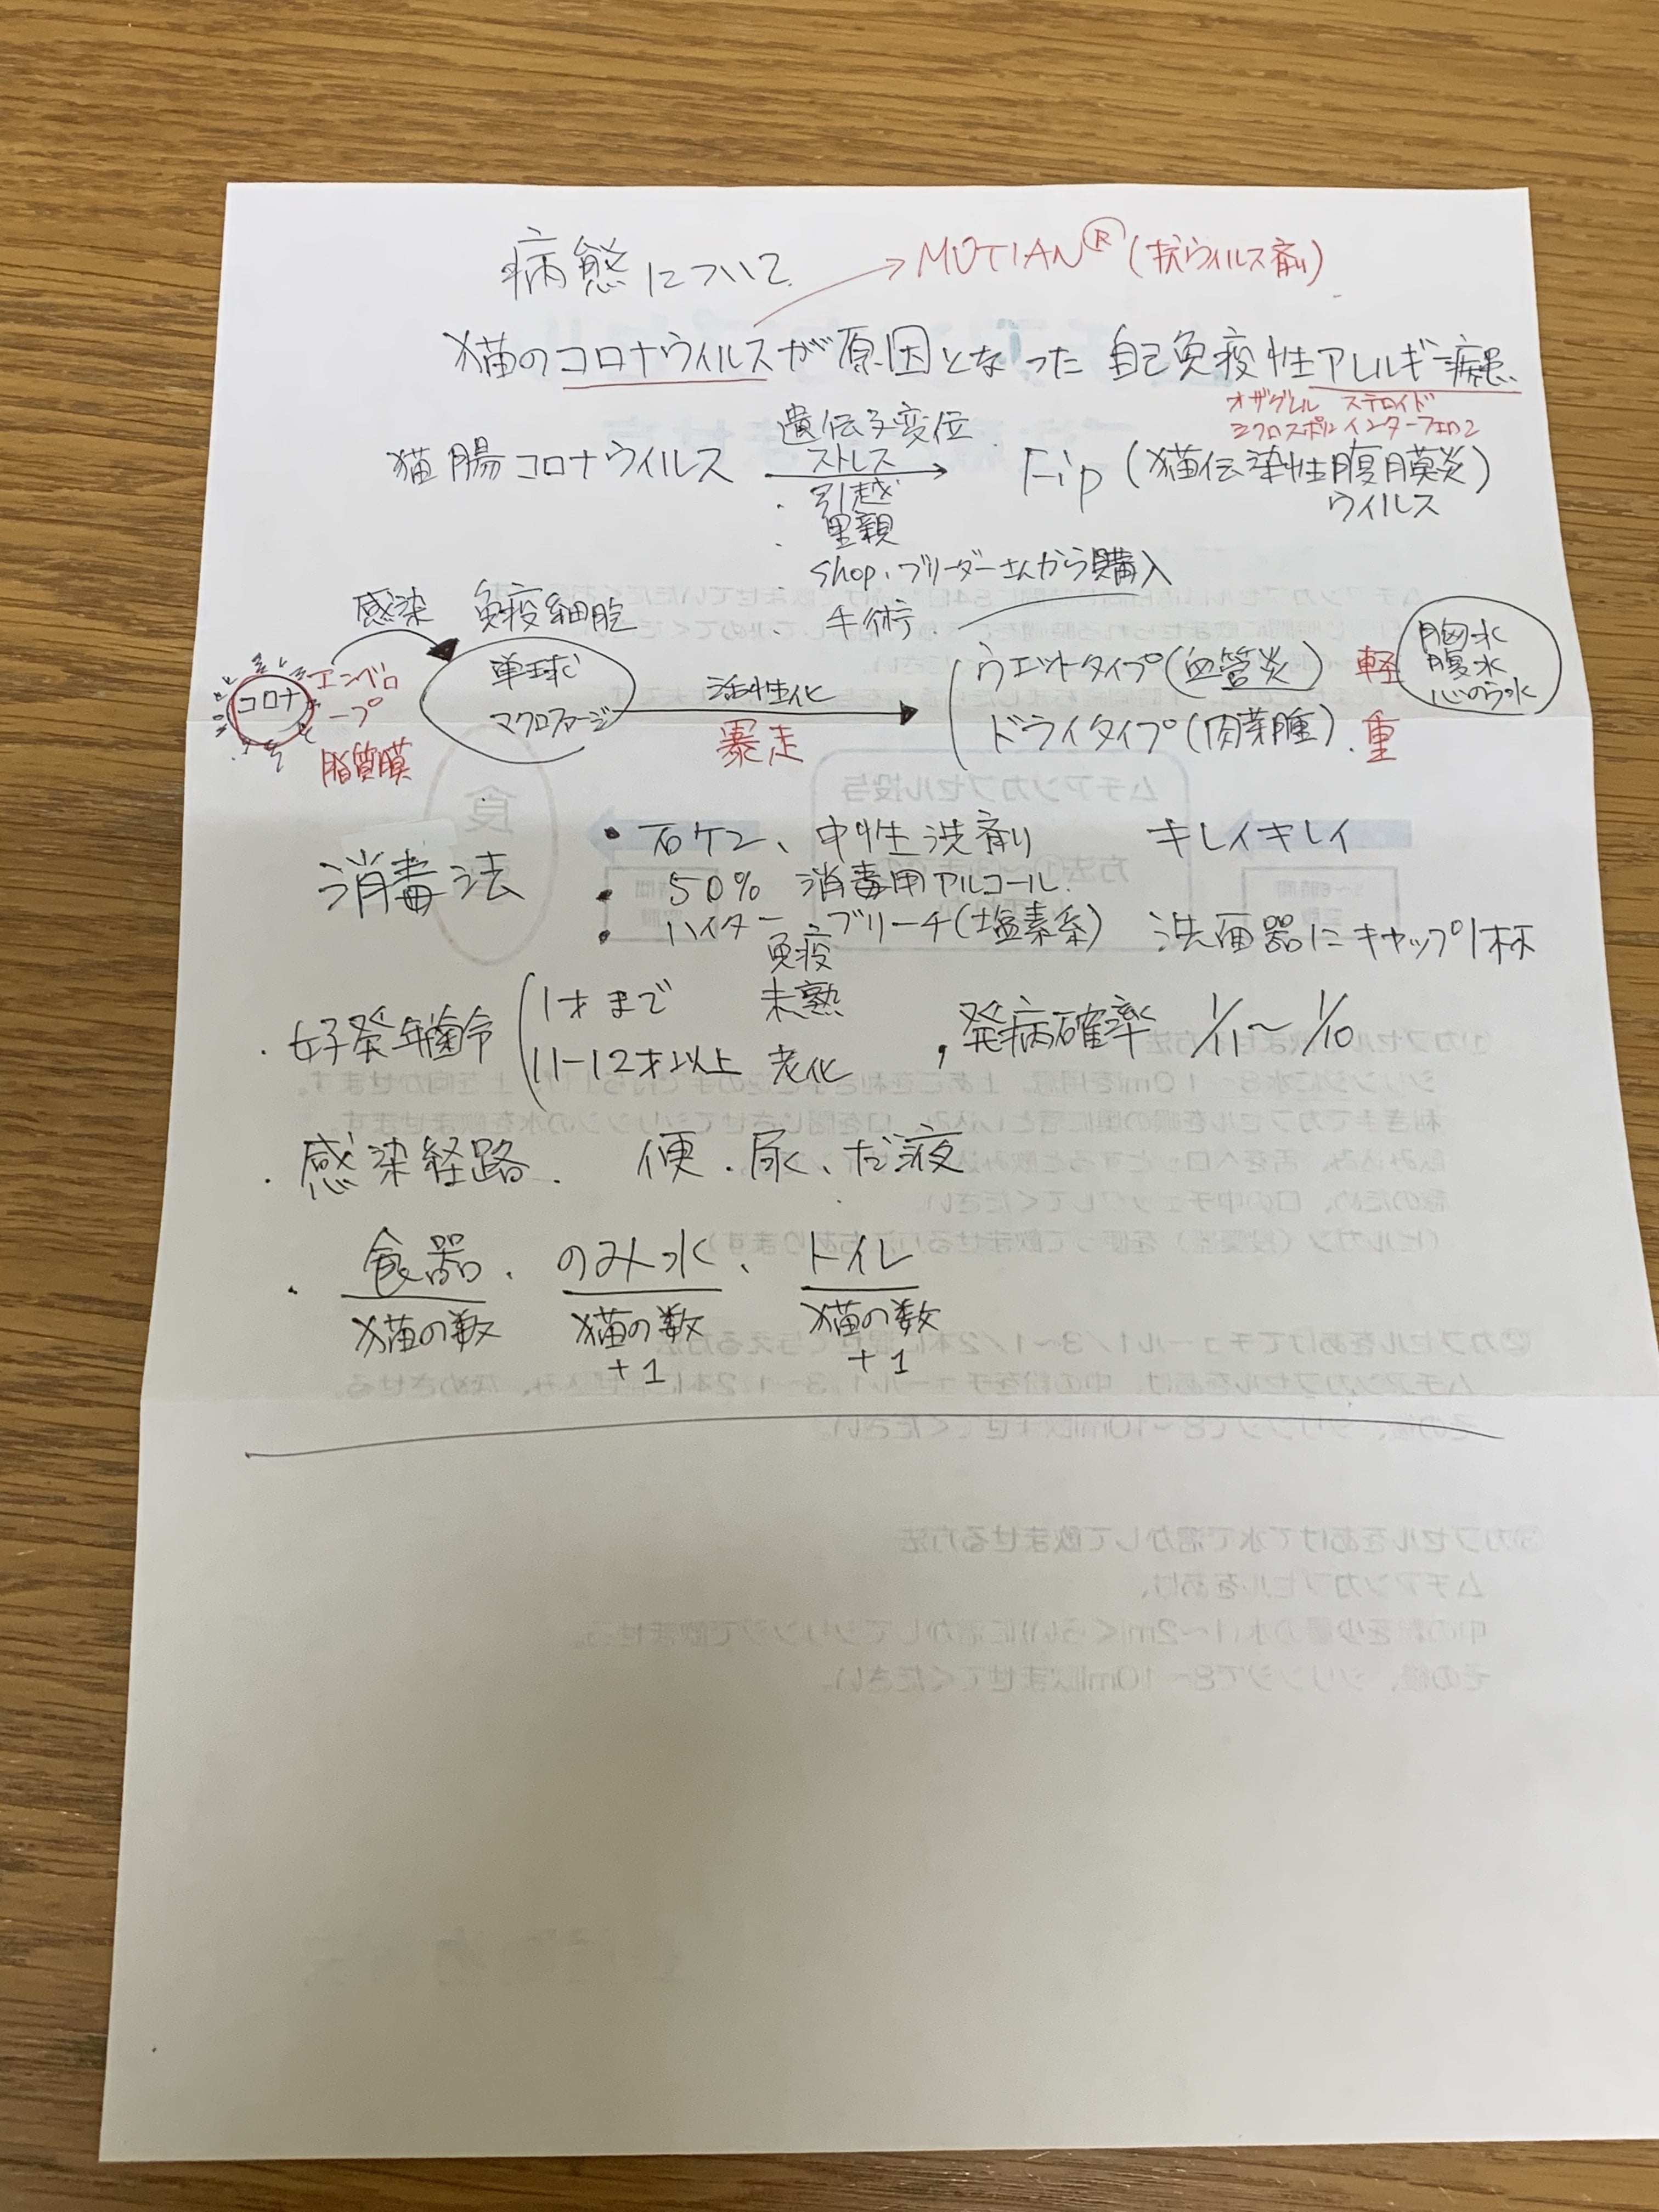 病態について → MUTIAN® (抗ウィルス剤)
猫のコロナウィルスが原因となった 自己免疫性アレルギー疾患
オザグレル ステロイド
ミクロスポリン インターフェロン
遺伝子変位
猫腸コロナウイルス ストレス → Fip (猫伝染性腹膜炎)
ウィルス
・引越
・里親
・shop.ブリーダーさんから購入
・手術
感染 免疫細胞
コロナ エンベロープ
脂質膜
単球
マクロファージ
活性化
暴走
ウエットタイプ(血管炎) 軽
ドライタイプ(肉芽腫). 重
胸水
腹水
心のう水
消毒法
・石ケン、中性洗剤 キレイキレイ
・50% 消毒用アルコール.
・ハイター ブリーチ(塩素系) 洗面器にキャップ1杯
・好発年齢 1才まで 免疫未熟
11-12才以上 老化
, 発病確率 1/11〜1/10
・感染経路. 便.尿、だ液
・食器. のみ水、トイレ
猫の数 猫の数 猫の数
+1 +1